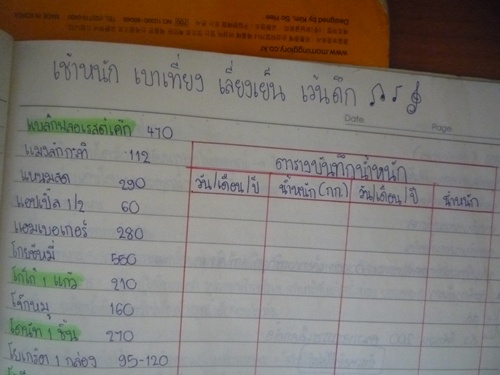 www.morningglory.co.kr
เช้าหนัก เบาเที่ยง เลี่ยงเย็น เว้นดึก
Date
Page
แบล็กฟอเรสต์เค้ก 470
112
แหนมสด 290
แอปเปิ้ล 1/2 60
แฮมเบอเกอร์ 280
โกยซีหมี่ 550
โกโก้ 1 แก้ว 210
โจ๊กหมู 160
โดนัท 1 ชิ้น 270
โยเกิร์ต 1 กล่อง 95-120
ตารางบันทึกน้ำหนัก
วัน/เดือน/ปี น้ำหนัก (กก.) วัน/เดือน/ปี น้ำหนัก